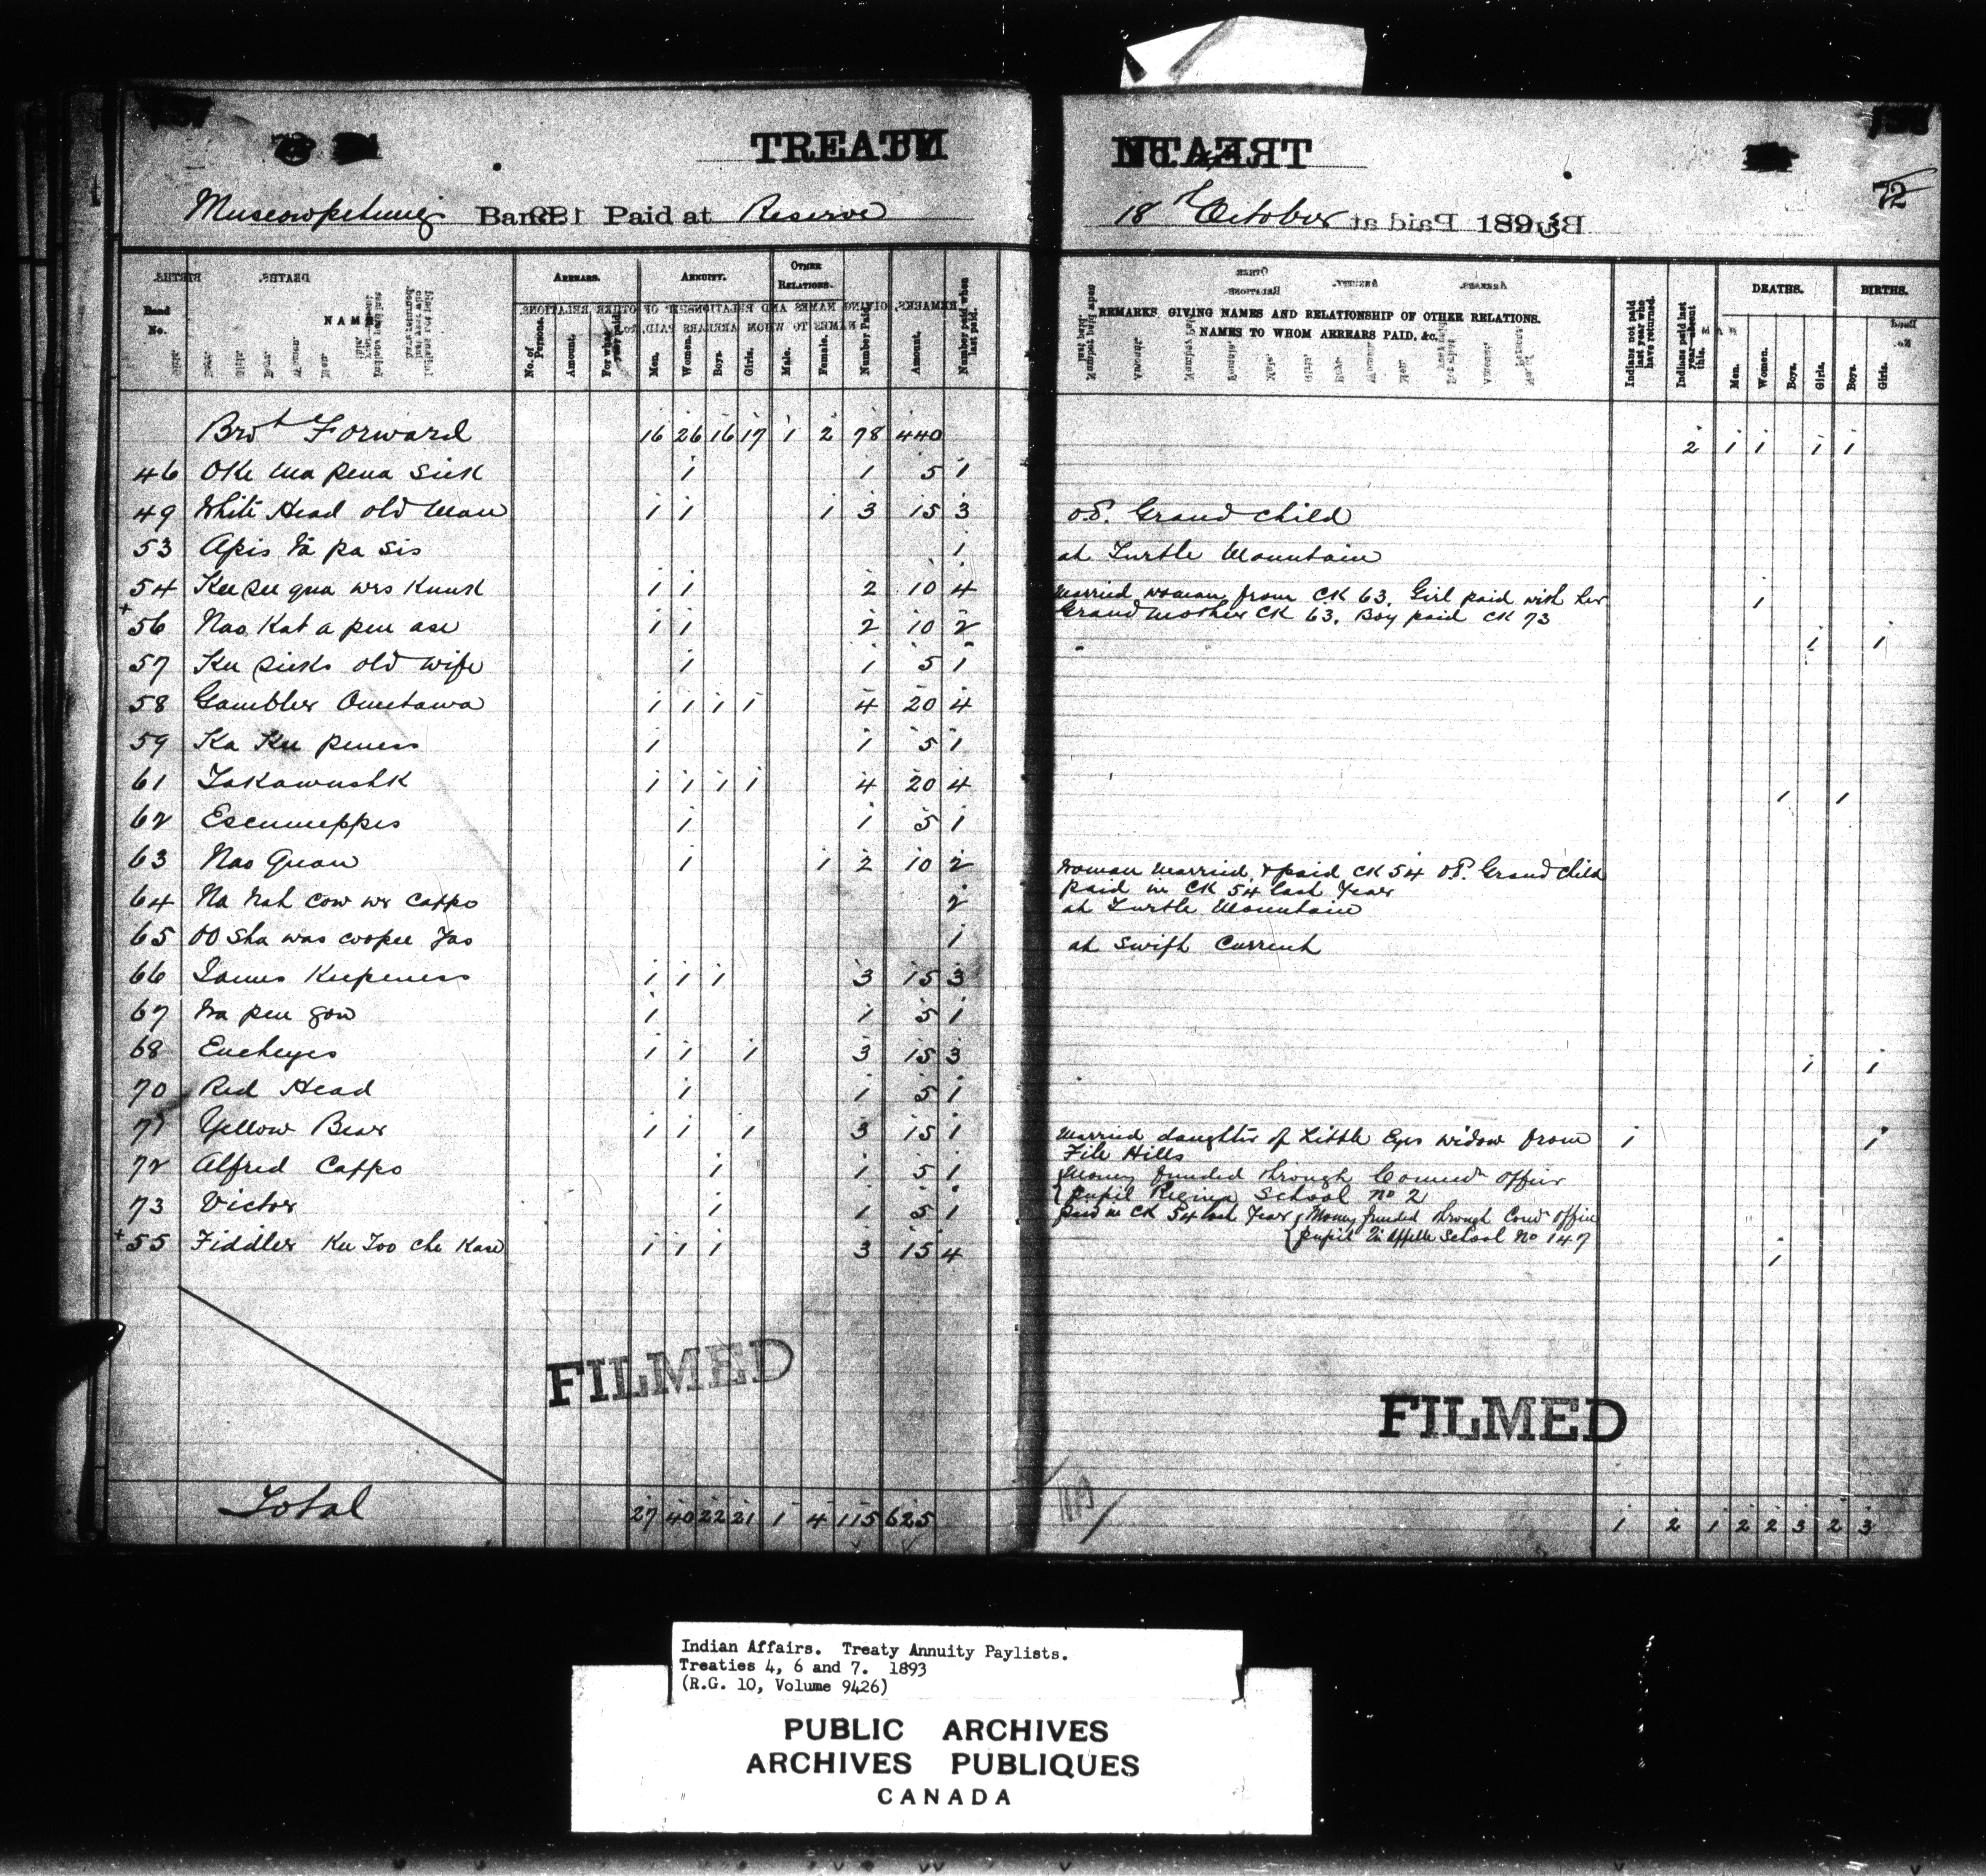 TREATY
Muscowpetung Band. Paid at Reserve
18th October 1893
72
Band No.
NAME
ARREARS.
No. of Persons.
Amount.
For what year paid.
ANNUITY.
Men.
Women.
Boys.
Girls.
OTHER RELATIONS.
Male.
Female.
Number Paid.
Amount.
Number paid when last paid.
REMARKS, GIVING NAMES AND RELATIONSHIP OF OTHER RELATIONS.
NAMES TO WHOM ARREARS PAID, &c.
Indians not paid last year who have returned.
Indians paid last year—absent this.
DEATHS.
Men.
Women.
Boys.
Girls.
BIRTHS.
Boys.
Girls.
Brot Forward 16 26 16 17 1 2 78 440 2 1 1 1 1
46 Oke ma pena sick 1 1 5 1
49 White Head old man 1 1 1 3 15 3 of. Grand child
53 Apis wa pa sis 1 at Turtle Mountain
54 Kee see qua wes kunk 1 1 2 10 4 Married woman from CK 63. Girl paid with her 1
Grandmother CK 63. Boy paid CK 73
+56 Nao Kat a pen ase 1 1 2 10 2 1 1
57 Kee sicks old wife 1 1 5 1
58 Gambler Ometawa 1 1 1 1 4 20 4
59 Ka Kee peness 1 1 5 1
61 Takawushk 1 1 1 1 4 20 4 1 1
62 Escumeppes 1 1 5 1
63 Nao Quan 1 1 2 10 2 Woman married & paid CK 54 of. Grand child
paid in CK 54 last Year
64 Na nah cow we cappo 2 at Turtle Mountain
65 OO sha was coopee Jas 1 at Swift Current
66 James Keepeness 1 1 1 3 15 3
67 Wa pee gow 1 1 5 1
68 Eucheyes 1 1 1 3 15 3 1 1
70 Red Head 1 1 5 1
71 Yellow Bear 1 1 1 3 15 1 Married daughter of Little Eyes widow from 1 1
File Hills
72 Alfred Cappo 1 1 5 1 Money funded through Commrs office
pupil Regina School No 2
73 Victor 1 1 5 1 Paid in CK 54 last Year Money funded through Comr office
pupil Qu'Appelle School No 147
+55 Fiddler Kee Too che Kase 1 1 1 3 15 4 1
FILMED
FILMED
Total 27 40 22 21 1 4 115 625 1 2 1 2 2 3 2 3
Indian Affairs. Treaty Annuity Paylists.
Treaties 4, 6 and 7. 1893
(R.G. 10, Volume 9426)
PUBLIC ARCHIVES
ARCHIVES PUBLIQUES
CANADA